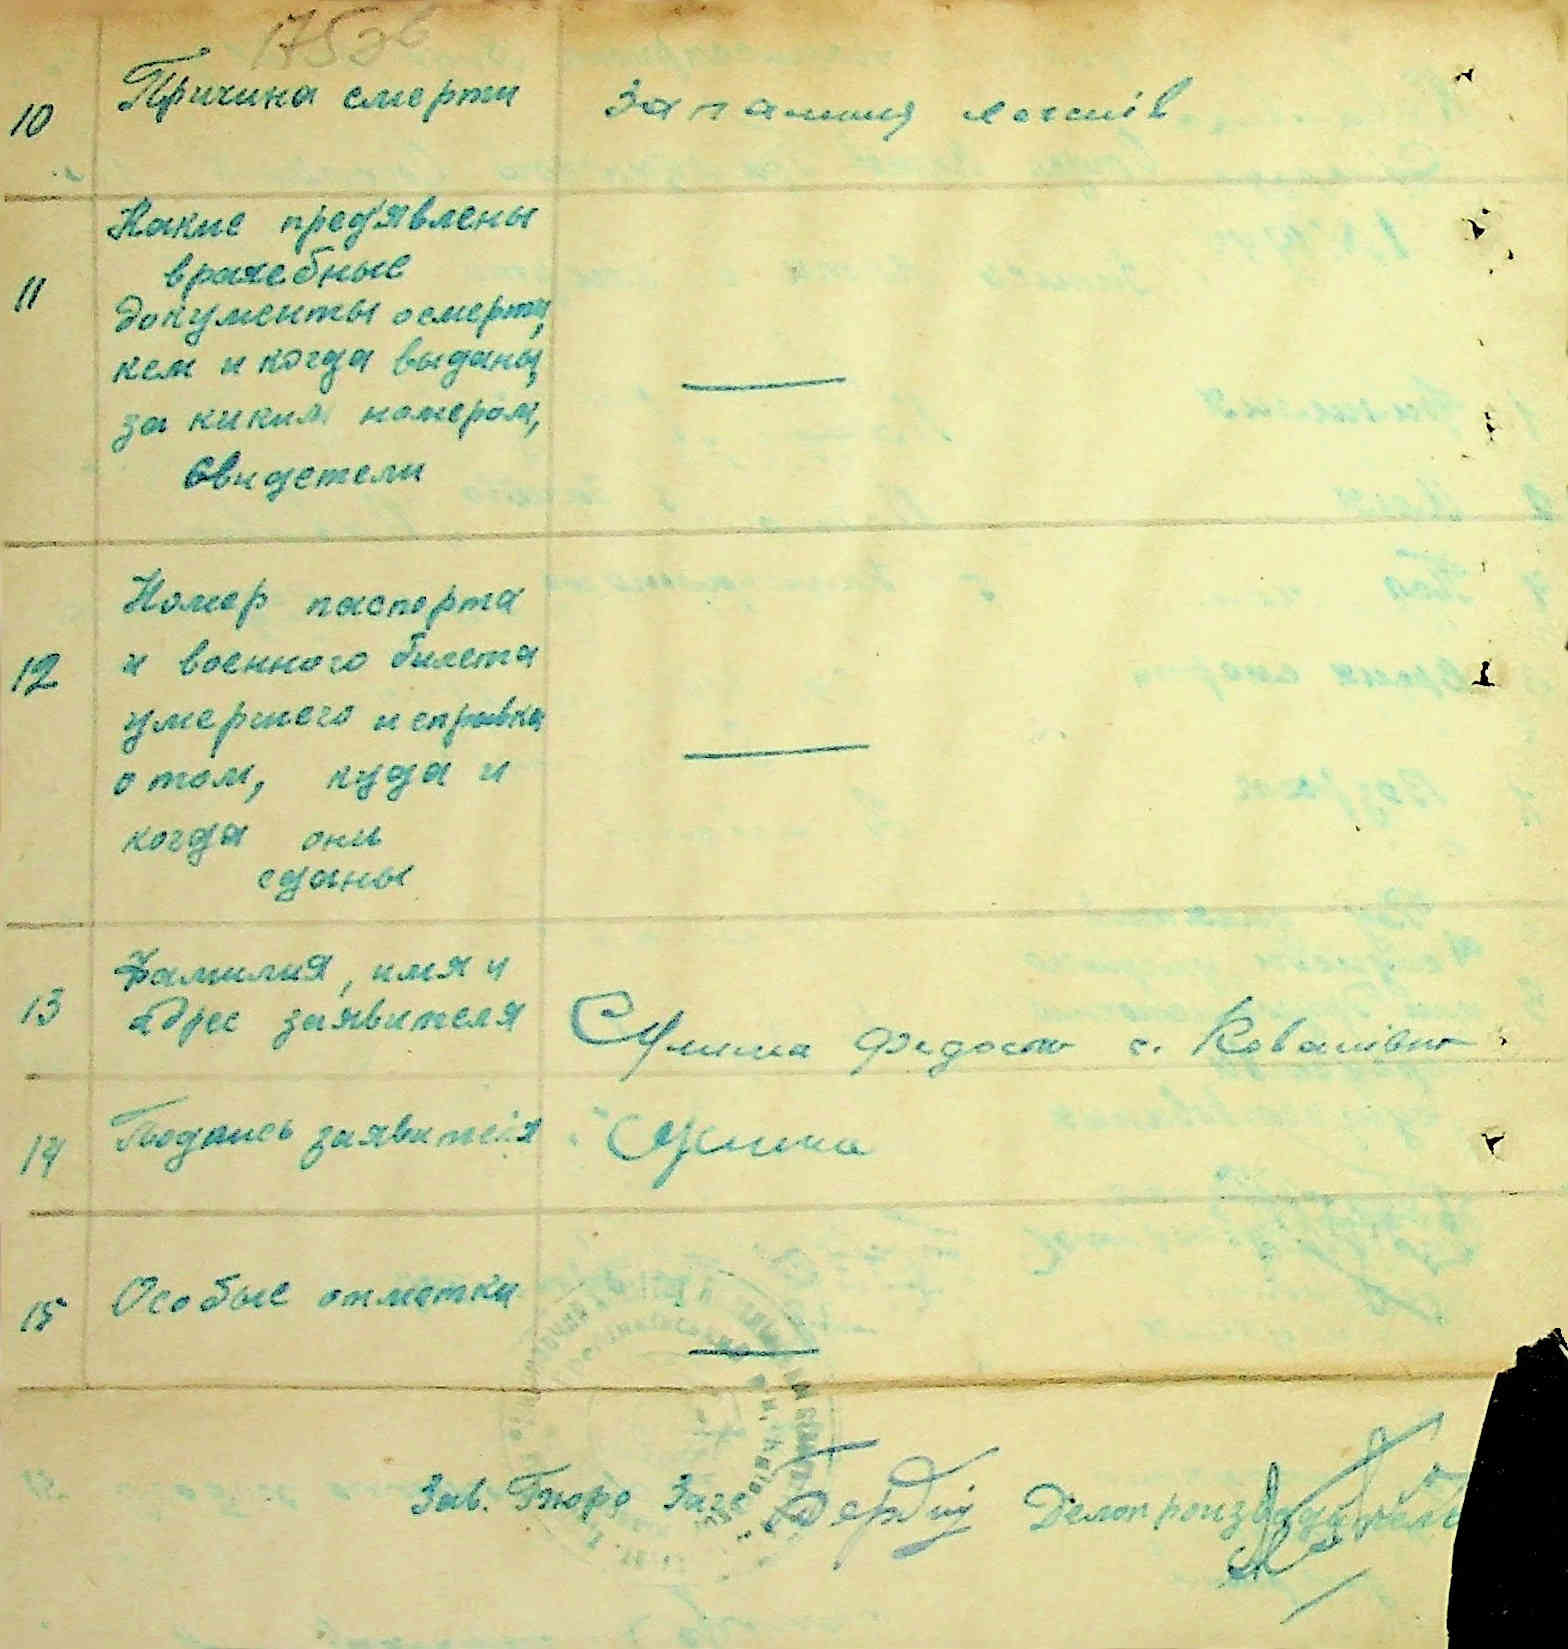 175зв
10 Причина смерти Запалення легенів
11 Какие пред'явлены
врачебные
документы о смерти,
кем и когда выданы,
за каким номером,
Свидетели
12 Номер паспорта
и военного билета
умершего и справка
о том, куда и
когда они
сданы
13 Фамилия, имя и
адрес заявителя Сулима Федосій с. Ковалівка
14 Подпись заявителя Сулима
15 Особые отметки
Зав. Бюро Загс Делопроизводитель